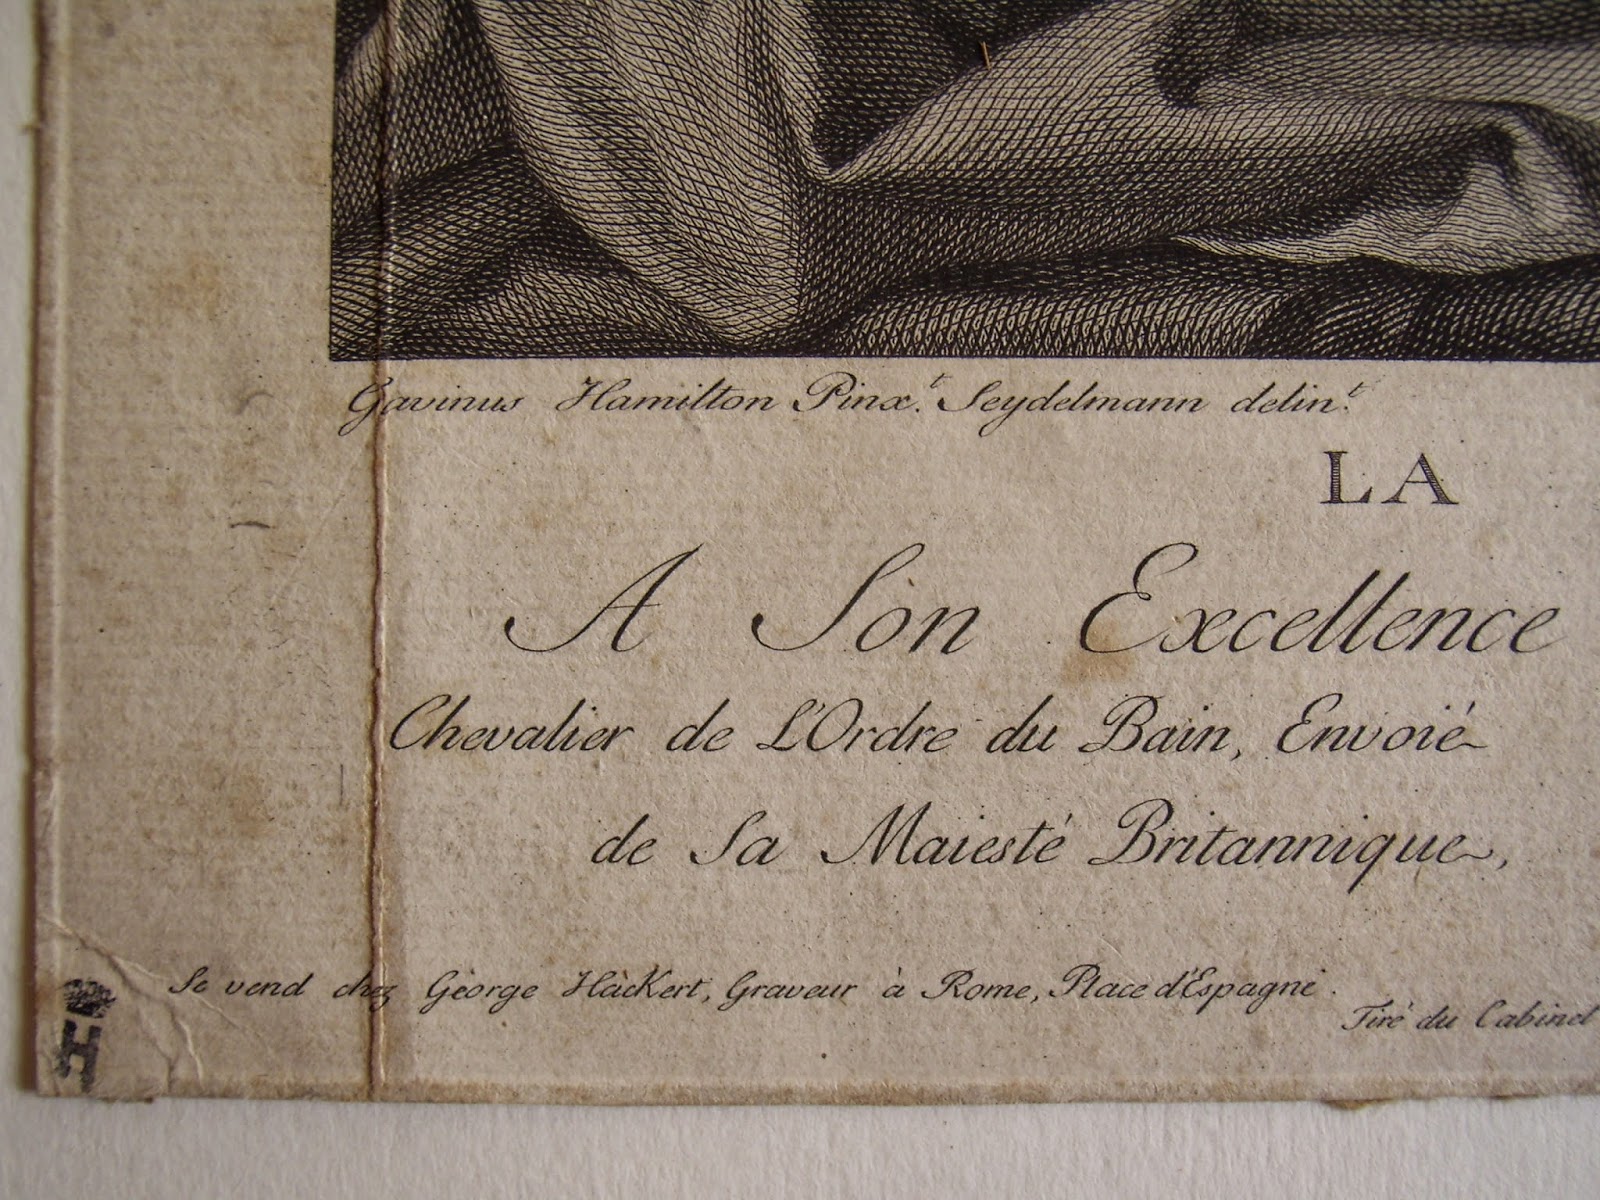 Gavinus Hamilton Pinx.t Seydelmann delin.t
LA
A Son Excellence
Chevalier de L'Ordre du Bain, Envoié
de Sa Maiesté Britannique,
Se vend chez Gèorge Hàckert, Graveur à Rome, Place d'Espagne.
Tiré du Cabinet
H